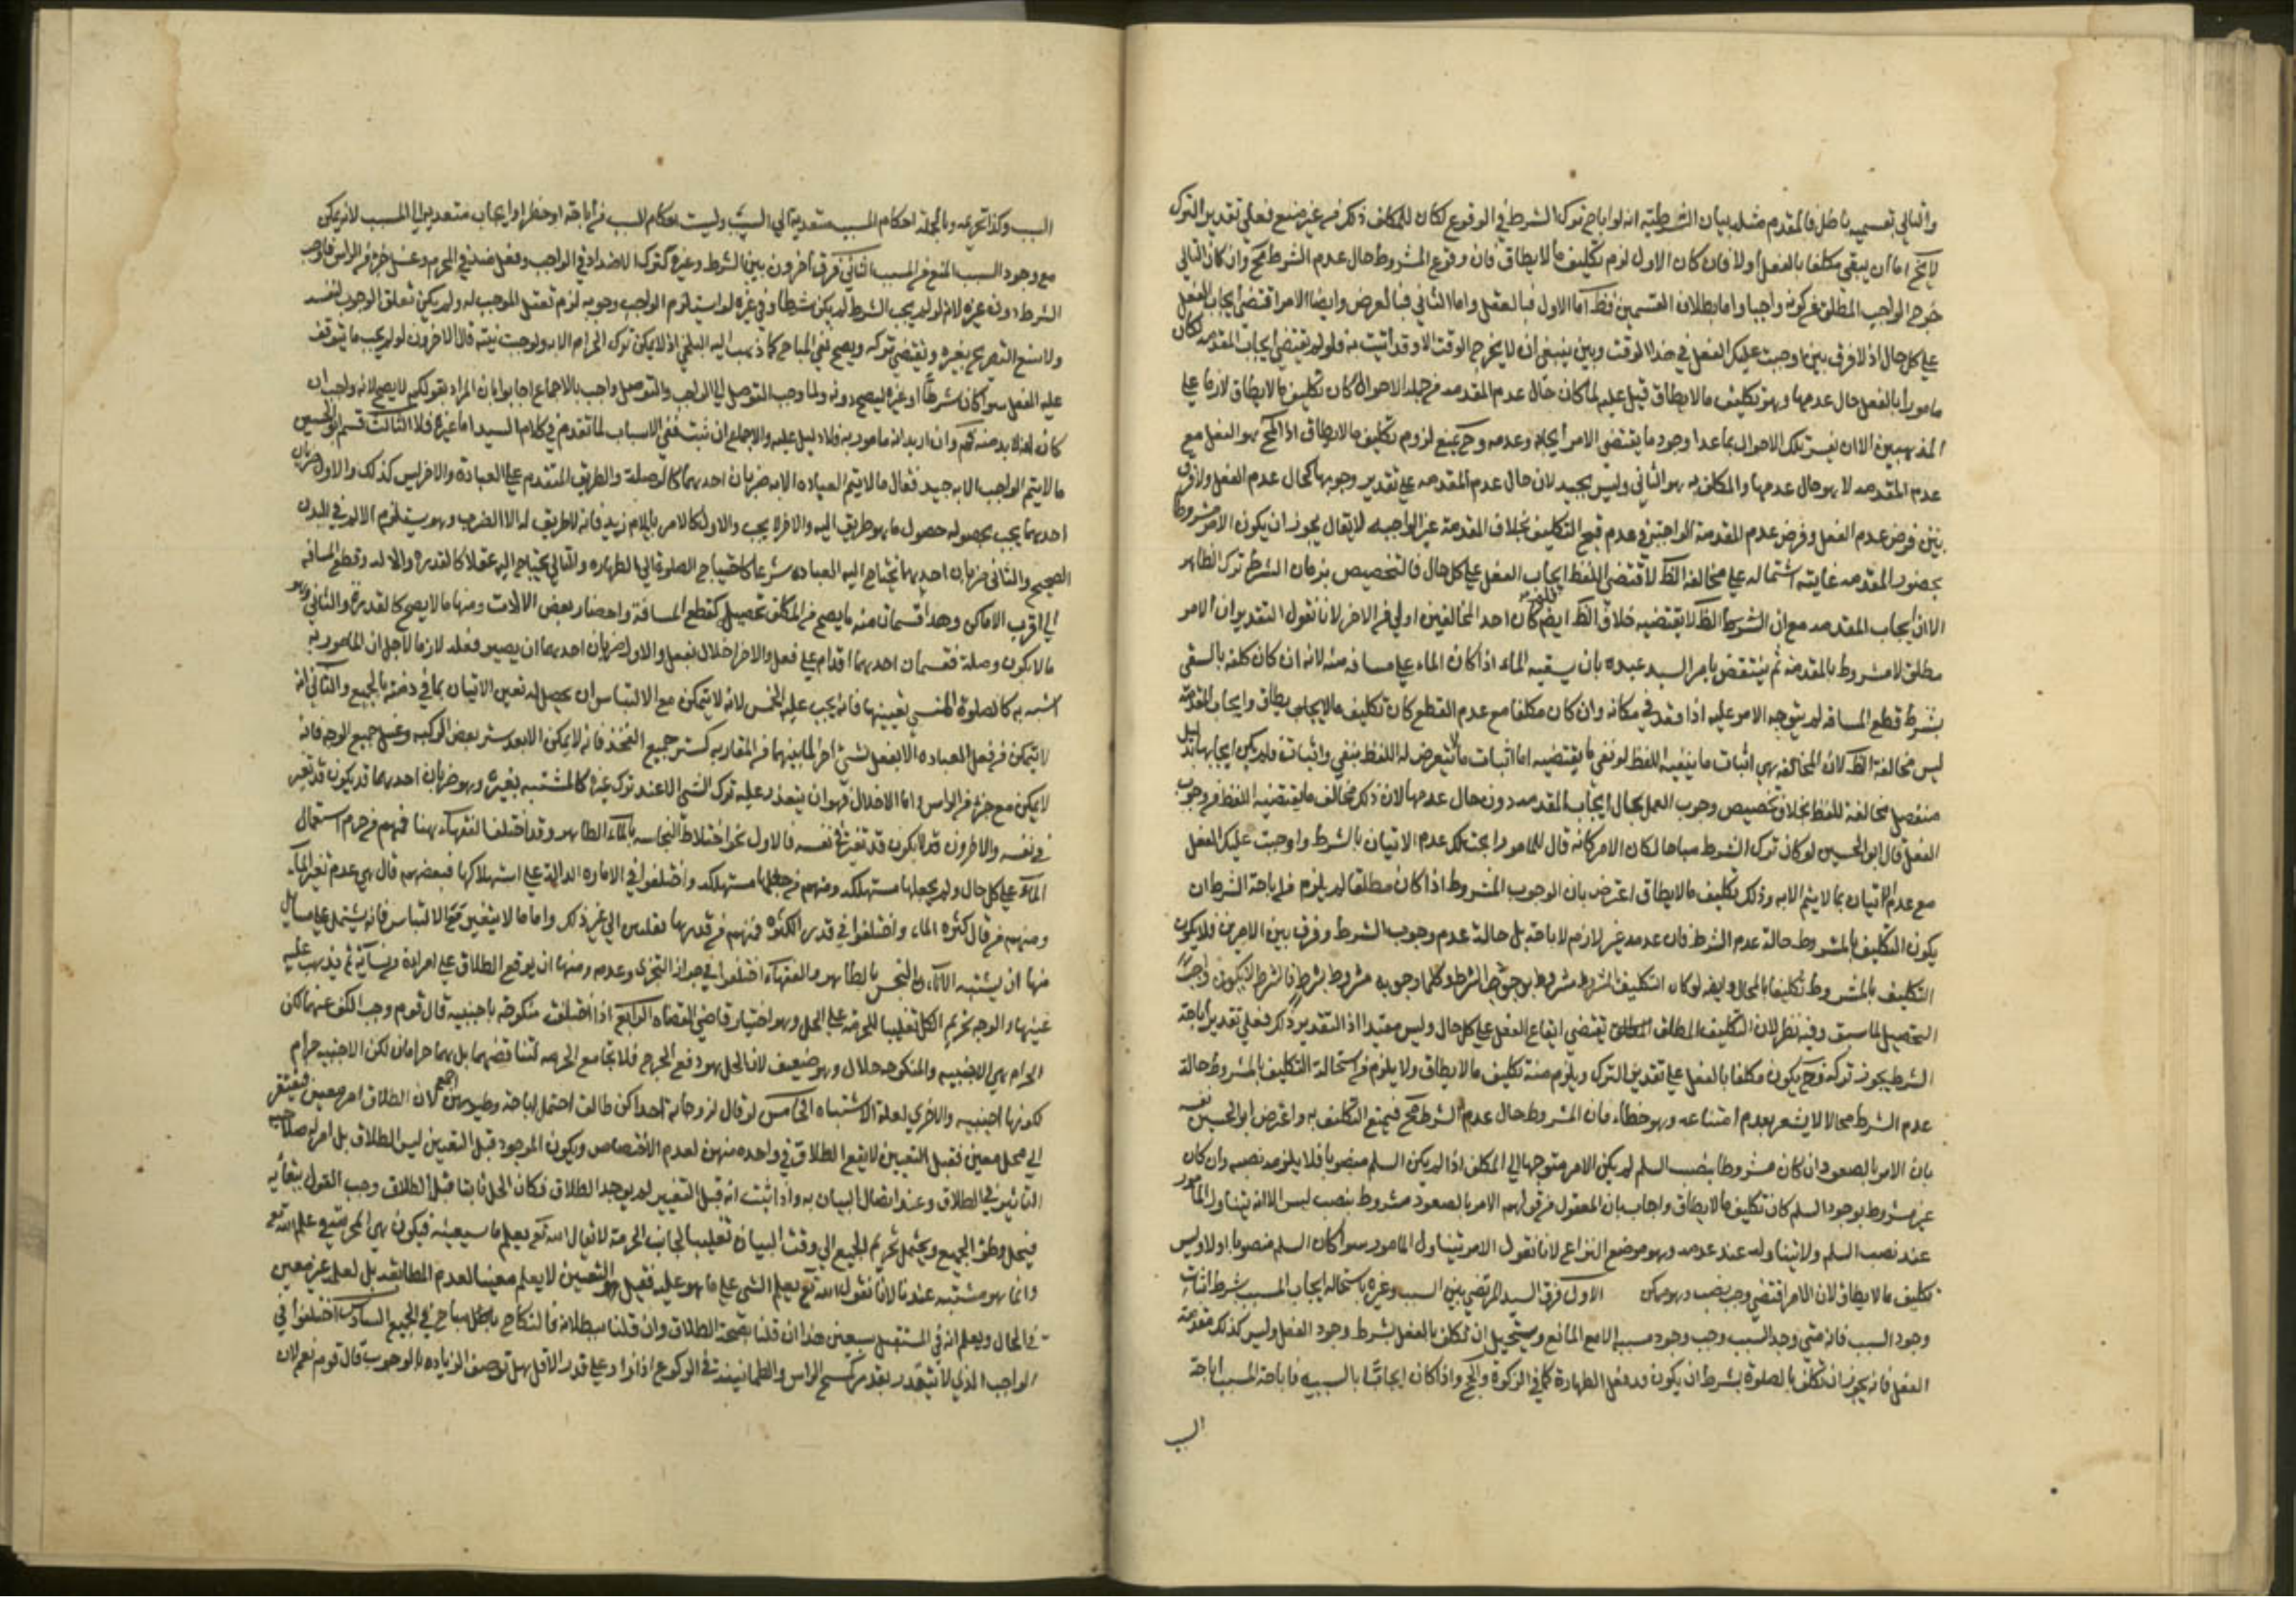 والتالي بقسميه باطل فالمقدم مثله بيان الشرطية انه لو اباح ترك الشرط في الوقوع لكان للمكلف ذلك من غير منع فعلى تقدير الترك
لا يخ اما ان يبقى مكلفا بالفعل اولا فان كان الاول لزم تكليف ما لا يطاق فان وقوع المشروط حال عدم الشرط مح وان كان الثاني
خرج الواجب المطلق عن كونه واجبا واما بطلان القسمين فظ اما الاول فبالعقل واما الثاني فبالعرض وايضا الامر اقتضى ايجاب الفعل
على كل حال اذ لا فرق بين اوجبت عليك الفعل في هذا الوقت وبين ينبغي ان لا يخرج الوقت الا وقد اتيت به فلو لم تقتضي ايجاب المقدمه لكان
مامورا بالفعل حال عدمها وهو تكليف ما لا يطاق قيل عليه لما كان حال عدم المقدمه من جملة الاحوال كان تكليف ما لا يطاق لازما على
المذهبين الا ان نفسر تلك الاحوال بما عدا وجود ما يقتضى الامر ايجابه وعدمه وح يمنع لزوم تكليف ما لا يطاق اذ المح هو الفعل مع
عدم المقدمه لا هو حال عدمها والمكلف به هو الثاني وليس بجيد لان حال عدم المقدمه على تقدير وجوبها كحال عدم الفعل ولا فرق
بين فرض عدم الفعل وفرض عدم المقدمة الواجبة في عدم قبح التكليف بخلاف المقدمة غير الواجبه لا يقال يجوز ان يكون الامر مشروطا
بحضور المقدمه غايته اشتماله على مخالفة الظ لاقتضى اللفظ ايجاب الفعل على كل حال فالتخصيص بزمان الشرط ترك الظاهر
الا ان ايجاب المقدمه مع ان الظ لا يقتضيه خلاف الظ ايضا كان احد المخالفين اولى من الاخر لانا نقول التقدير ان الامر
مطلق لا مشروط بالمقدمه ثم ينتقض بامر السيد عبده بان يسقيه الماء اذا كان الماء على مسافه منه لانه ان كان كلفه بالسقى
بشرط قطع المسافه لم يتوجه الامر عليه اذا قعد في مكانه وان كان مكلفا مع عدم القطع كان تكليف ما لا يطاق وايجاب المقدمة
ليس مخالفة الظ لان المخالفه هي اثبات ما ينفيه اللفظ او نفي ما يقتضيه اما اثبات ما لا يتعرض له اللفظ بنفي واثبات فلم يكن ايجابها لدليل
منفصل مخالفة للفظ بخلاف تخصيص وجوب العمل بحال ايجاب المقدمه دون حال عدمها لان ذلك مخالف ما يقتضيه اللفظ من وجوب
الفعل قال ابو الحسين لو كان ترك الشرط مباحا لكان الامر كانه قال للمامور ابحت لك عدم الاتيان بالشرط واوجبت عليك الفعل
مع عدم الاتيان بما لا يتم الا به وذلك تكليف ما لا يطاق اعترض بان الوجوب المشروط اذا كان مطلقا لم يلزم من اباحة الشرط ان
يكون التكليف بالمشروط حالة عدم الشرط فان عدمه غير لازم لاباحته بل حالة عدم وجوب الشرط وفرق بين الامرين فلا يكون
التكليف بالمشروط تكليفا بالمحال وايضا لو كان التكليف المشروط مشروطا بوجوب الشرط وكلما وجوبه مشروط بشرط فالشرط لا يكون واجب
التحصيل لما سبق وفيه نظر لان التكليف المطلق يقتضي ايقاع الفعل على كل حال وليس مقيدا اذ التقدير ذلك فعلى تقدير اباحة
الشرط يجوز تركه فح يكون مكلفا بالفعل على تقدير الترك ويلزم منه تكليف ما لا يطاق ولا يلزم من استحالة التكليف بالمشروط حالة
عدم الشرط محالا لا يشعر بعدم امتناعه وهو خطاء فان المشروط حال عدم الشرط مح فيمتنع التكليف به واعترض ابو الحسين نفسه
بان الامر بالصعود ان كان مشروطا بنصب السلم لم يكن الامر متوجها الى المكلف اذا لم يكن السلم منصوبا فلا يلزمه نصبه وان كان
غير مشروط بوجود السلم كان تكليف ما لا يطاق واجاب بان المعقول من قولهم الامر بالصعود مشروط بنصب ليس الا انه يتناول المامور
عند نصب السلم ولا يتناوله عند عدمه وهو موضع النزاع لانا نقول الامر يتناول المامور سوا كان السلم منصوبا اولا وليس
تكليف ما لا يطاق لان الامر اقتضى وجوب نصبه وهو ممكن الاول فرق السيد المرتضى بين السبب وغيره باستحاله ايجاب المسبب بشرط اتفاق
وجود السبب فانه متى وجد السبب وجب وجود مسببه الا مع المانع ويستحيل ان نكلف بالفعل بشرط وجود الفعل وليس كذلك مقدمة
الفعل فانه يجوز ان نكلف بالصلوة بشرط ان يكون قد فعل الطهارة كما في الزكوة والحج واذا كان ايجابا بالسببيه فاباحة المسبب اباحة
السب
السبب وكذا تحريمه وبالجملة احكام المسبب متعدية الى السبب وليست احكام السبب من اباحة او حظر او ايجاب متعدية الى المسبب لانه يمكن
مع وجود السبب المنع من المسبب الثاني فرق آخرون بين الشرط وغيره كترك الاضداد في الواجب وفعل ضد في المحرم وغسل جزء من الراس فاوجب
الشرط دون غيره لانه لو لم يجب الشرط لم يكن شرطا وفي غيره لو استلزم الواجب وجوبه لزم تعقل الموجب له ولم يكن تعلق الوجوب لنفسه
ولامتنع التصريح بغيره ونقتضي تركه ويصح نفي المباح كما ذهب اليه البلخي اذ لا يمكن ترك الحرام الا به ولوجبت نيته قال الاخرون لو لم يجب ما يتوقف
عليه الفعل سوا كان شرطا او غيره ليصح دونه ولما وجب التوصل الى الواجب والتوصل واجب بالاجماع اجابوا بان المراد بقولكم لا يصح لانه واجب ان
كان انه لا بد منه فم وان اريد انه مامور به فلا دليل عليه والاجماع ان ثبت ففي الاسباب لما تقدم في كلام السيد اما غيره فلا الثالث قسم ابو الحسين
ما لا يتم الواجب الا به جيد فقال ما لا يتم العباده الا به ضربان احدهما كالوصلة والطريق المتقدم على العبادة والاخر ليس كذلك والاول ضربان
احدهما يجب بحصوله حصول ما هو طريق اليه والاخر لا يجب والاول كالامر بايلام زيد فانه لا طريق له الا الضرب وهو يستلزم الالم في البدن
الصحيح والثاني ضربان احدهما يحتاج اليه العباده شرعا كاحتياج الصلوة الى الطهاره والثاني يحتاج اليه عقلا كالقدرة والاله وقطع المسافه
الى اقرب الاماكن وهذا قسمان منه ما يصح من المكلف تحصيل كقطع المسافة واحضار بعض الالات ومنها ما لا يصح كالقدرة والثاني وهو
ما لا يكون وصلة فقسمان احدهما اقدام على فعل والاخر اخلال بفعل والاول ضربان احدهما ان يصير فعله لازما لاجل ان المامور به
اشتبه به كالصلوة المنسي تعيينها فانه يجب عليه الخمس لانه لا يتمكن مع الالتباس ان يحصل له تعين الاتيان بما في ذمته بالجميع والثاني انه
لا يتمكن من فعل العباده الا بفعل لشئ اخر لما بينهما من المقاربه كستر جميع الفخذ فانه لا يمكن الا بعد ستر بعض الركبه وغسل جميع الوجه فانه
لا يمكن مع جزء من الراس واما الاخلال فهو ان يتعذر عليه ترك الشئ الا عند ترك غيره كالمشتبه بغيره وهو ضربان احدهما قد يكون قد تغير
في نفسه والاخر ان قد لا يكون قد تغير في نفسه فالاول نحو اختلاط النجاسه بالماء الطاهر وقد اختلف الفقهاء ههنا فمنهم من حرم استعمال
الماء على كل حال ولم يجعلها مستهلكه ومنهم من جعلها مستهلكه واختلفوا في الاماره الدالة على استهلاكها فبعضهم قال هي عدم تغير الماء
ومنهم من قال كثرة الماء واختلفوا في قدر الكثرة فمنهم من قدرها بقلتين الى غير ذلك واما ما لا يتغير مع الالتباس فانه يشتمل على مسائل
منها ان يشتبه الاناء النجس بالطاهر والفقهاء اختلفوا في جواز التحري وعدمه ومنها ان يوقع الطلاق على امراة من نسائه ثم يذهب عليه
عينها والوجه تحريم الكل تغليبا للحرمة على الحل وهو اختيار قاضى القضاه الرابع اذا اختلفت منكوحه باجنبيه قال قوم وجب الكف عنهما لكن
الحرام هي الاجنبيه والمنكوحه حلال وهو ضعيف لان الحل هو دفع الحرج فلا يجامع الحرمه لتناقضهما بل هما حرامان لكن الاجنبيه حرام
لكونها اجنبيه والاخرى لعلة الاشتباه الخامس لو قال لزوجاته احداكن طالق احتمل اباحة وطيهن اجمع لان الطلاق امر معين فيفتقر
الى محل معين فقبل التعيين لا يقع الطلاق في واحده منهن لعدم الاختصاص ويكون الموجود قبل التعيين ليس الطلاق بل امر له صلاحيه
التاثير في الطلاق وعند اتصال البيان به واذا ثبت انه قبل التعيين لم يوجد الطلاق فكان الحل ثابتا قبل الطلاق وجب القول ببقائه
فيحل وطئ الجميع ويحتمل تحريم الجميع الى وقت البيان تغليبا لجانب الحرمة لا يقال الله تع يعلم ما سيعينه فيكون هي المحرمة في علم الله تع
وانما هو مشتبه عندنا لانا نقول الله تع يعلم الشئ على ما هو عليه فقبل التعيين لا يعلم معينا لعدم المطابقه بل لعله غير معين
في الحال ويعلم انه في المستقبل سيعين هذا ان قلنا بصحة الطلاق وان قلنا ببطلانه فالنكاح باطل مباح في الجميع السادس اختلفوا في
الواجب الذي لا يتقدر بقدر كمسح الراس والطمانينه في الركوع اذا زاد على قدر الاقل هل توصف الزياده بالوجوب قال قوم نعم لان